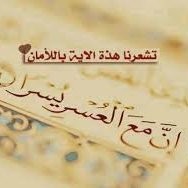 تشعرنا هذة الاية باللأمان
إِنَّ مَعَ الْعُسْرِ يُسْرًا